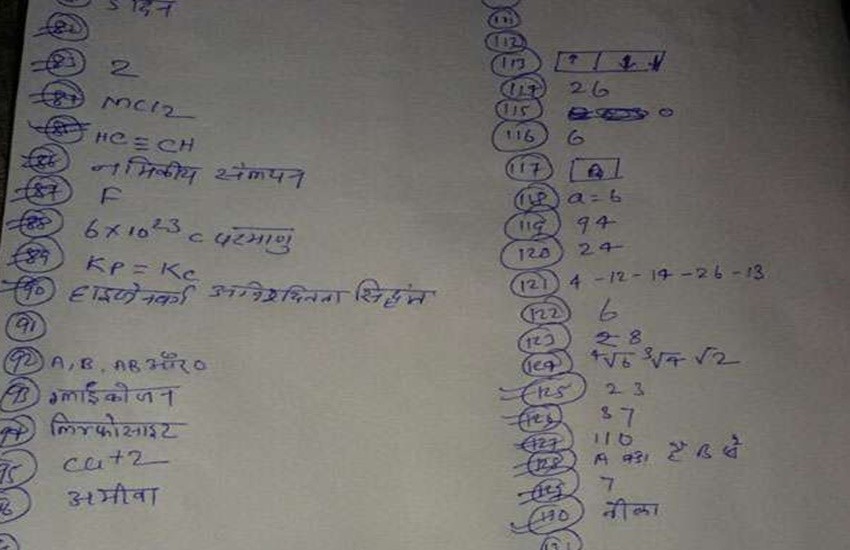 5 दिन
82
83 2
84 MCl2
85 HC ≡ CH
86 नाभिकीय संलयन
87 F
88 6 × 10^23 C परमाणु
89 KP = Kc
90 हाइजेनबर्ग अनिश्चितता सिद्धांत
91
92 A, B, AB और O
93 ग्लाईकोजन
94 लिम्फोसाइट
95 Ca+2
96 अमीबा
111
112
113 ↑ ↓ ↓
114 26
115 0
116 6
117
118 a = 6
119 94
120 24
121 4 - 12 - 14 - 26 - 13
122 6
123 28
124 ⁴√6 ³√4 √2
125 23
126 37
127 110
128 A बड़ा है B से
129 7
130 नौका
131